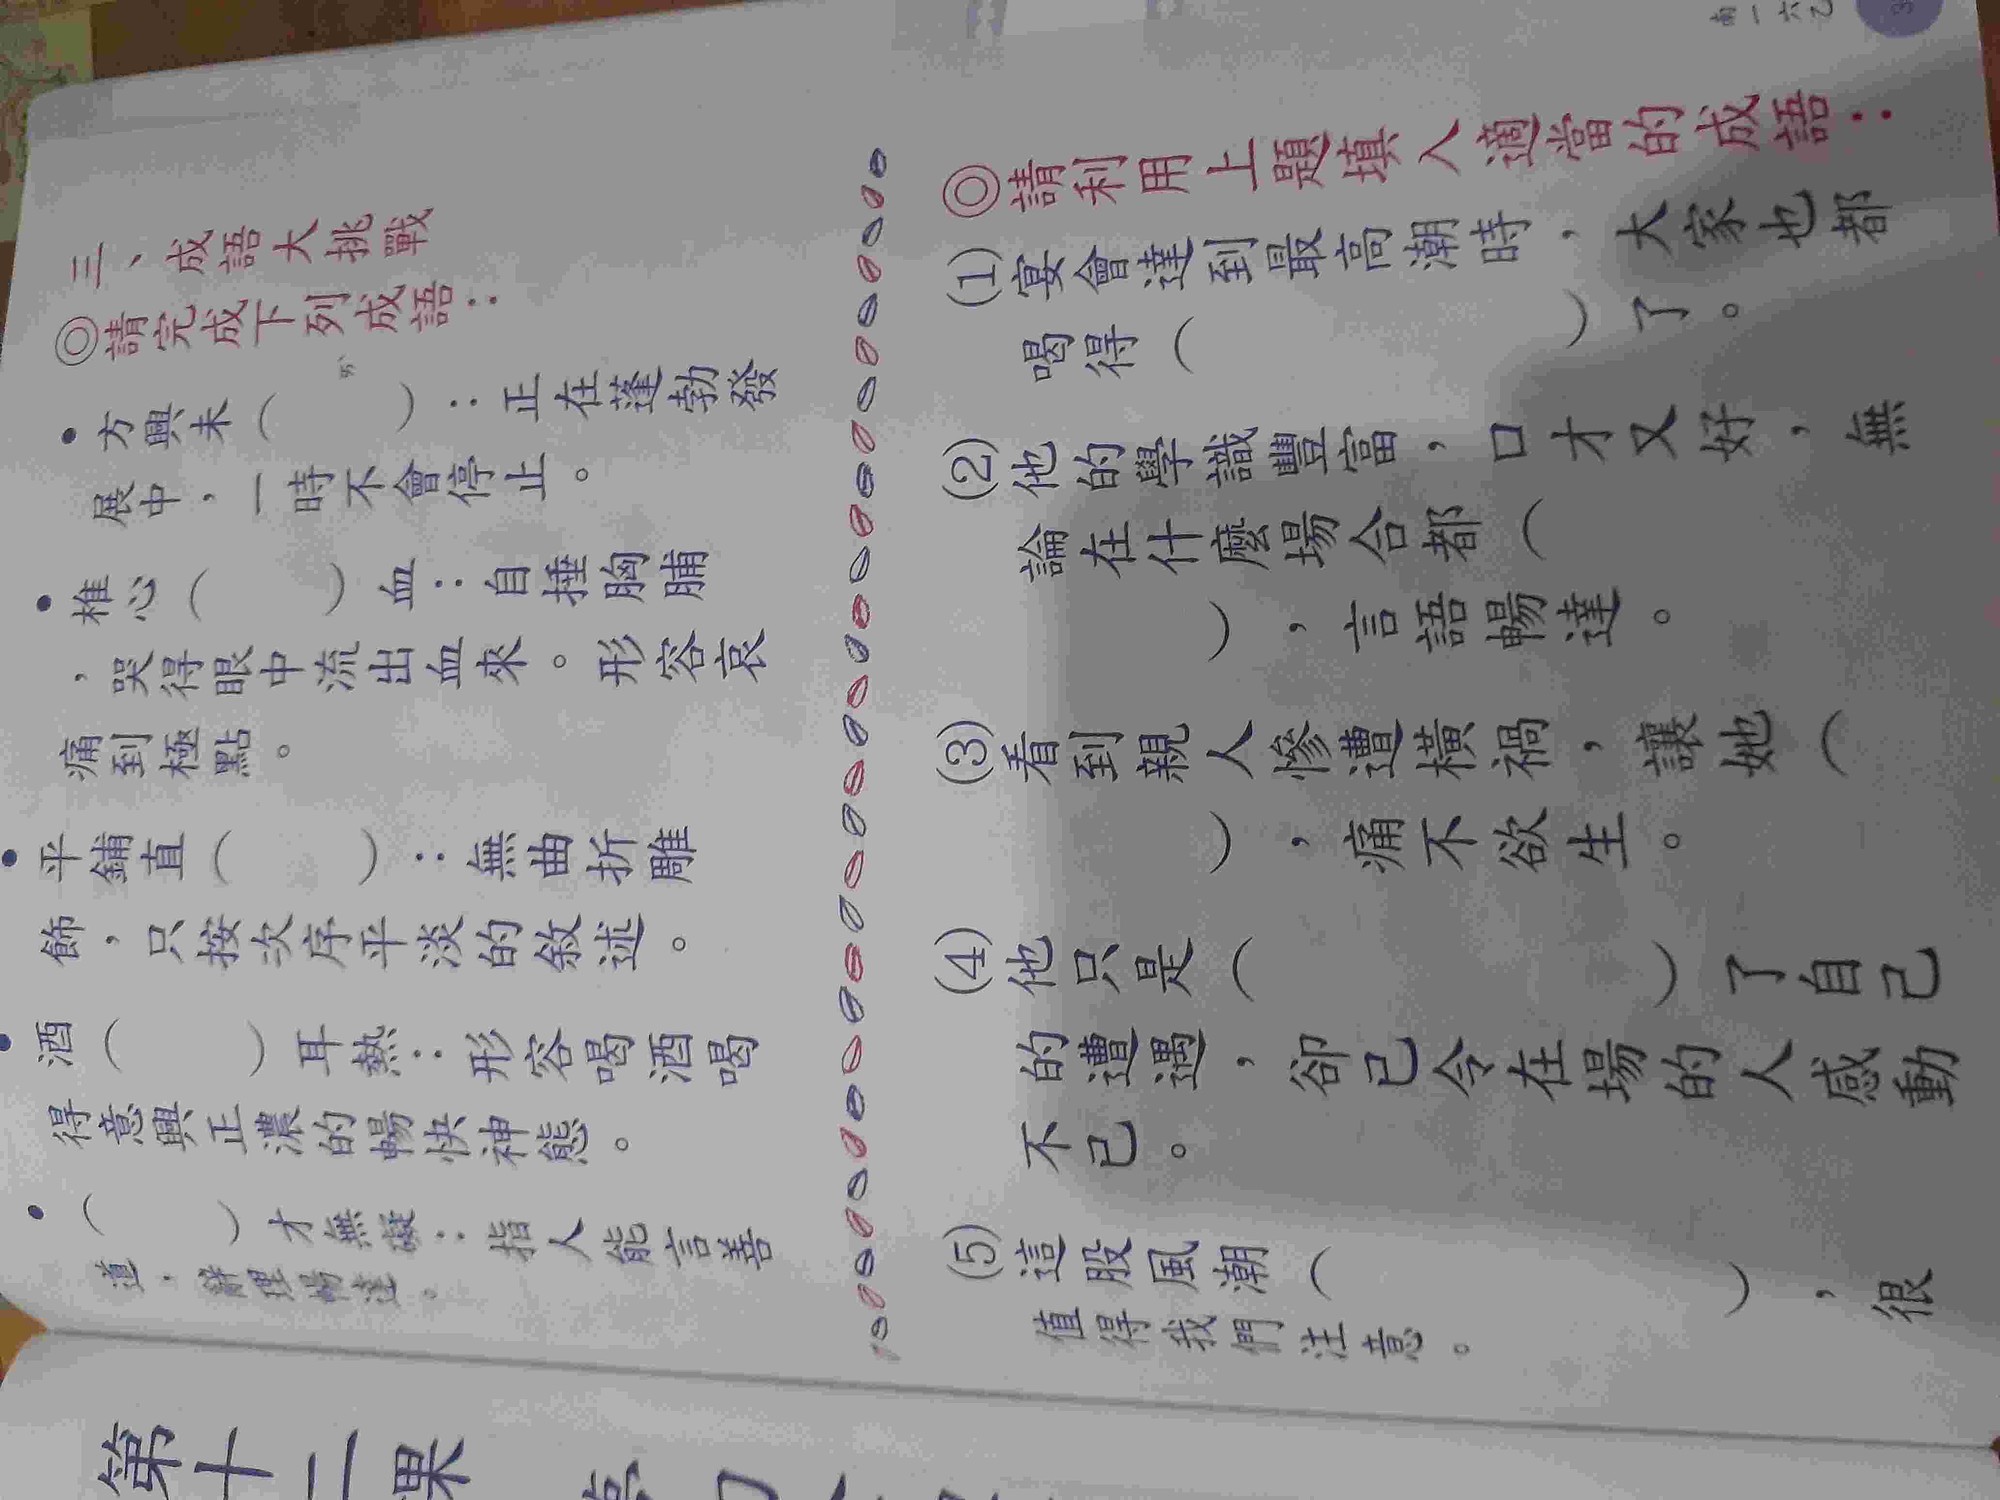 三、成語大挑戰
◎請完成下列成語：
•方興未（　　）：正在蓬勃發
展中，一時不會停止。
•椎心（　　）血：自捶胸脯
，哭得眼中流出血來。形容哀
痛到極點。
•平鋪直（　　）：無曲折雕
飾，只按次序平淡的敘述。
•酒（　　）耳熱：形容喝酒喝
得意興正濃的暢快神態。
•（　　）才無礙：指人能言善
道，辭理暢達。
◎請利用上題填入適當的成語：
(1)宴會達到最高潮時，大家也都
喝得（　　　　）了。
(2)他的學識豐富，口才又好，無
論在什麼場合都（
　　），言語暢達。
(3)看到親人慘遭橫禍，讓她（
　　），痛不欲生。
(4)他只是（　　　　）了自己
的遭遇，卻已令在場的人感動
不已。
(5)這股風潮（　　　　），很
值得我們注意。
南一六乙
第十二課